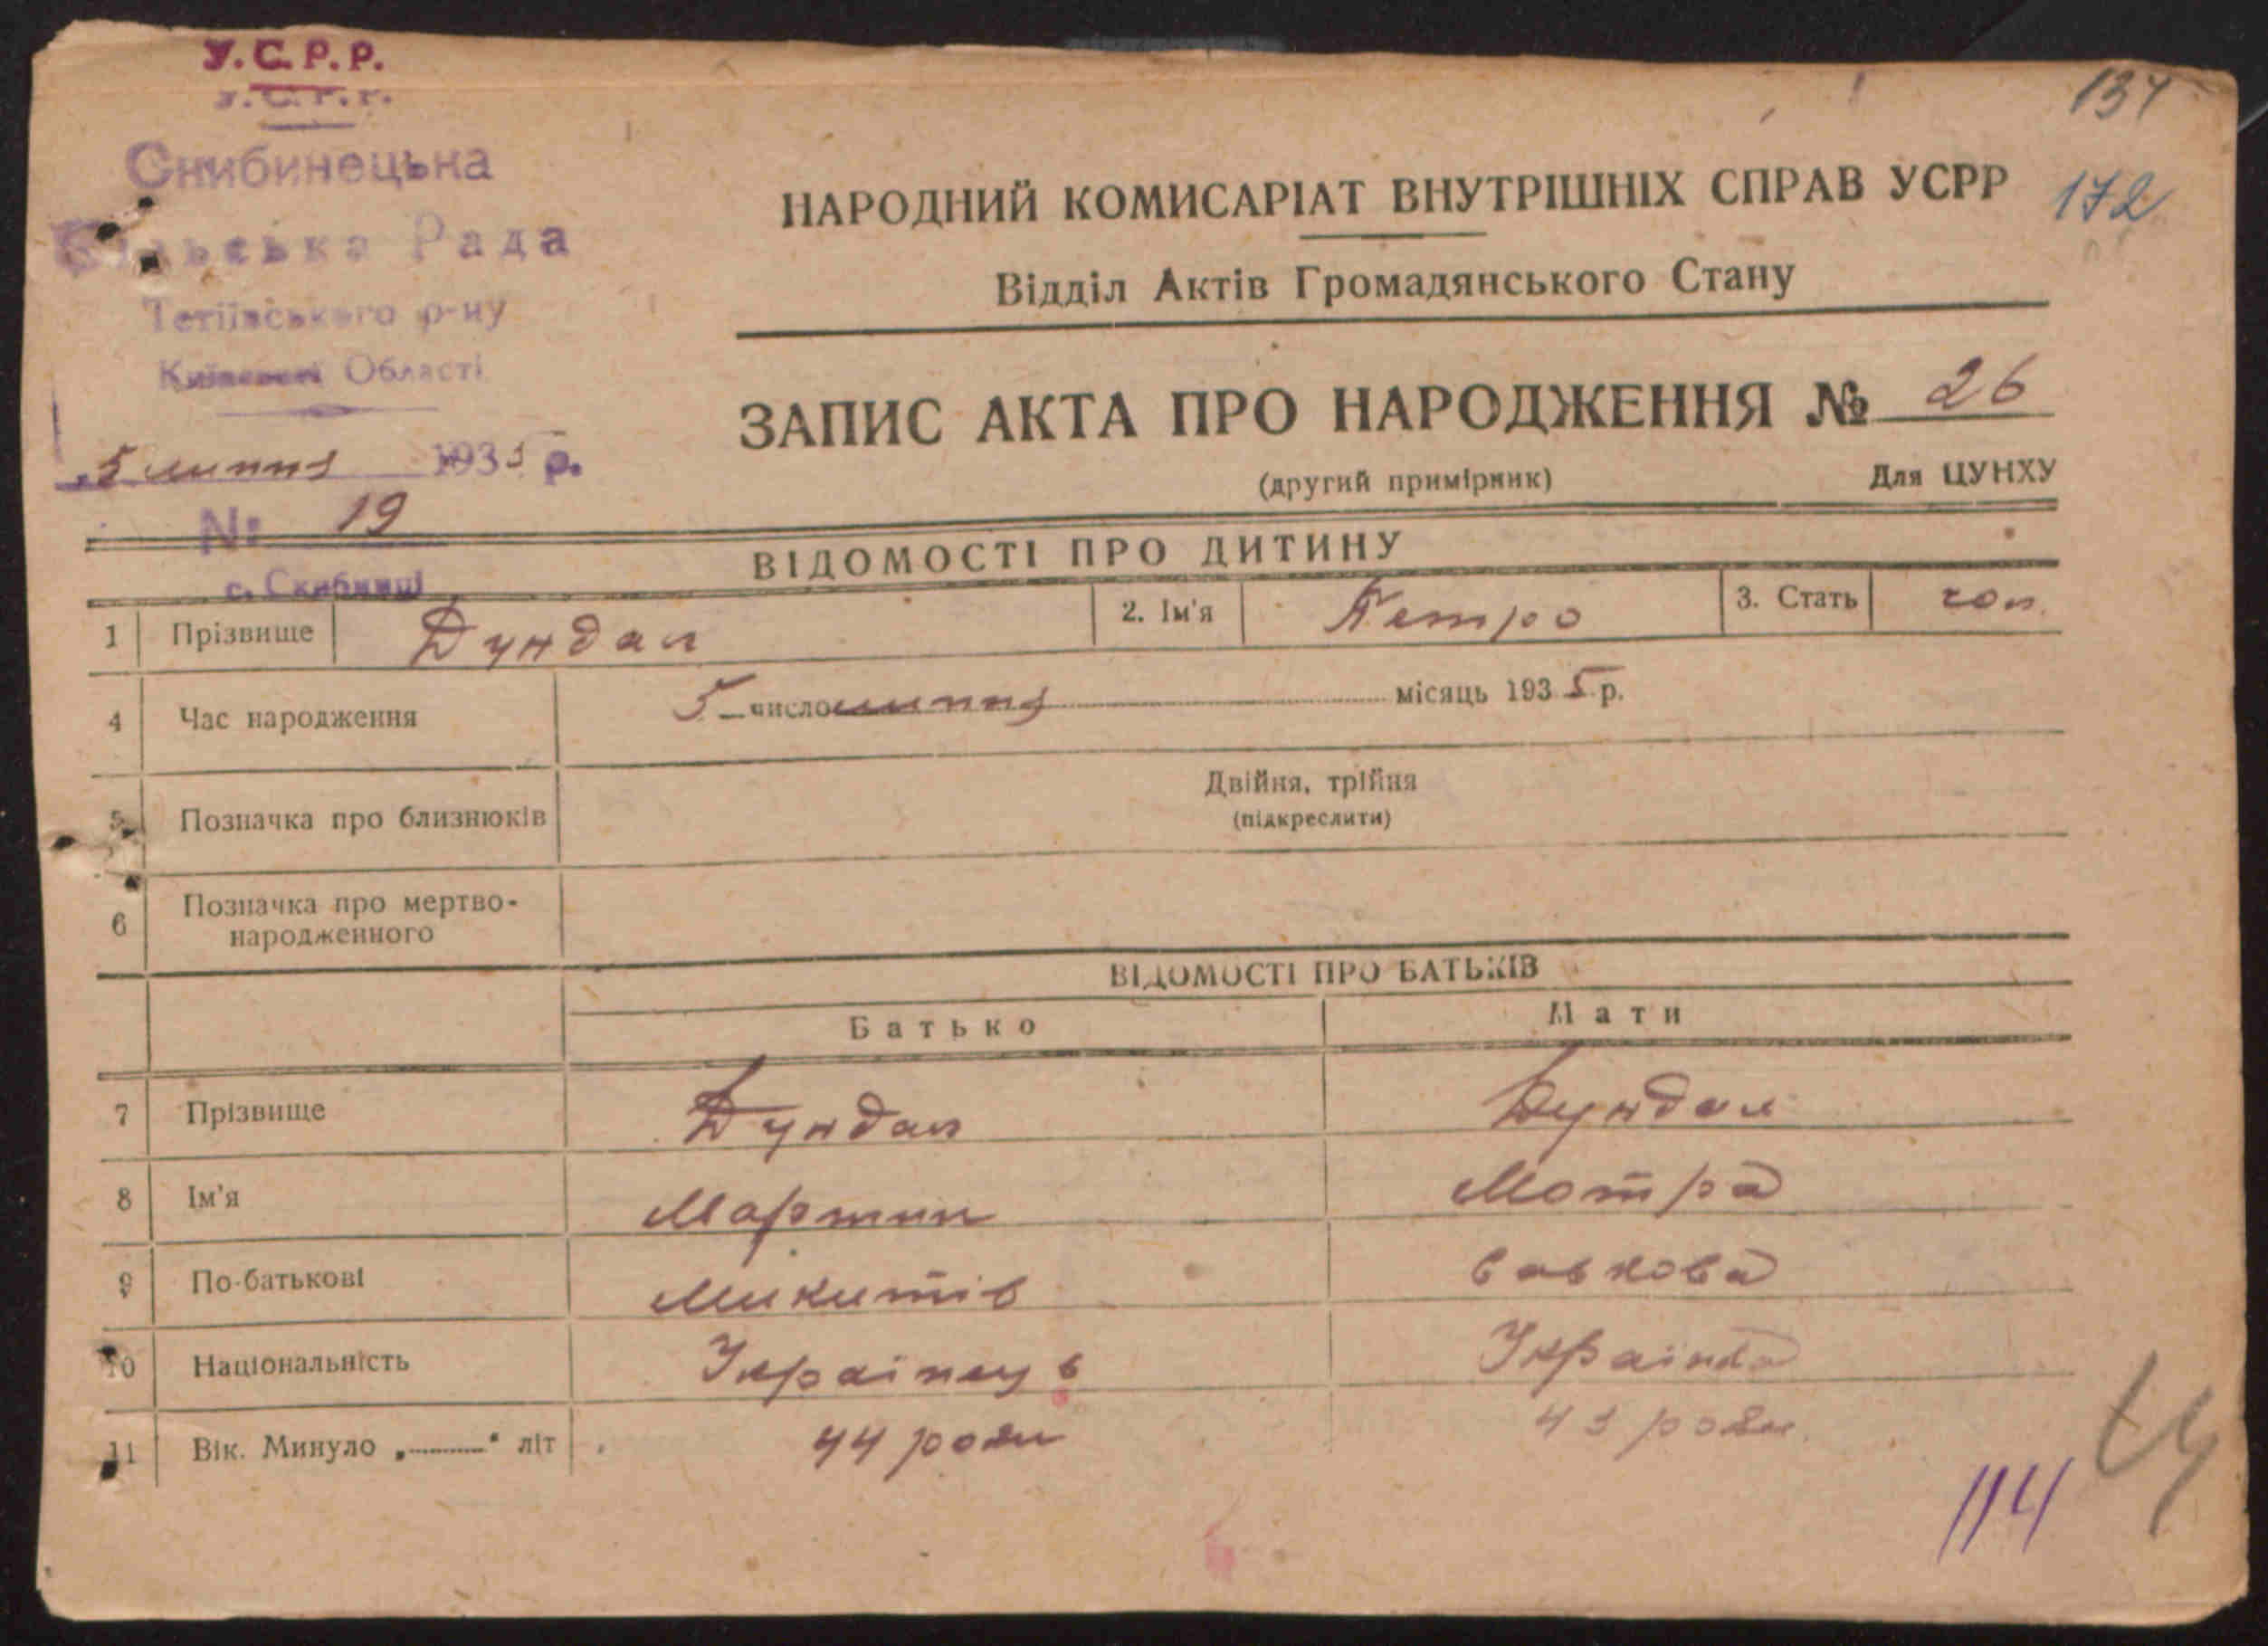 У.С.Р.Р.
У.С.Р.Р.
Скибинецька
Сільська Рада
Тетіївського р-ну
Київської Області
"5 липня 1935 р.
№ 19
с. Скибинці
134
172
НАРОДНИЙ КОМИСАРІАТ ВНУТРІШНІХ СПРАВ УСРР
Відділ Актів Громадянського Стану
ЗАПИС АКТА ПРО НАРОДЖЕННЯ № 26
(другий примірник) Для ЦУНХУ
ВІДОМОСТІ ПРО ДИТИНУ
1 Прізвище Дундал 2. Ім'я Петро 3. Стать чол.
4 Час народження 5 число липня місяць 1935 р.
5 Позначка про близнюків Двійня, трійня
(підкреслити)
6 Позначка про мертво-
народженного
ВІДОМОСТІ ПРО БАТЬКІВ
Батько Мати
7 Прізвище Дундал Дундал
8 Ім'я Мартин Мотра
9 По-батькові Микитів Савкова
10 Національність Українець Українка
11 Вік. Минуло „ “ літ 44 роки 43 роки
114